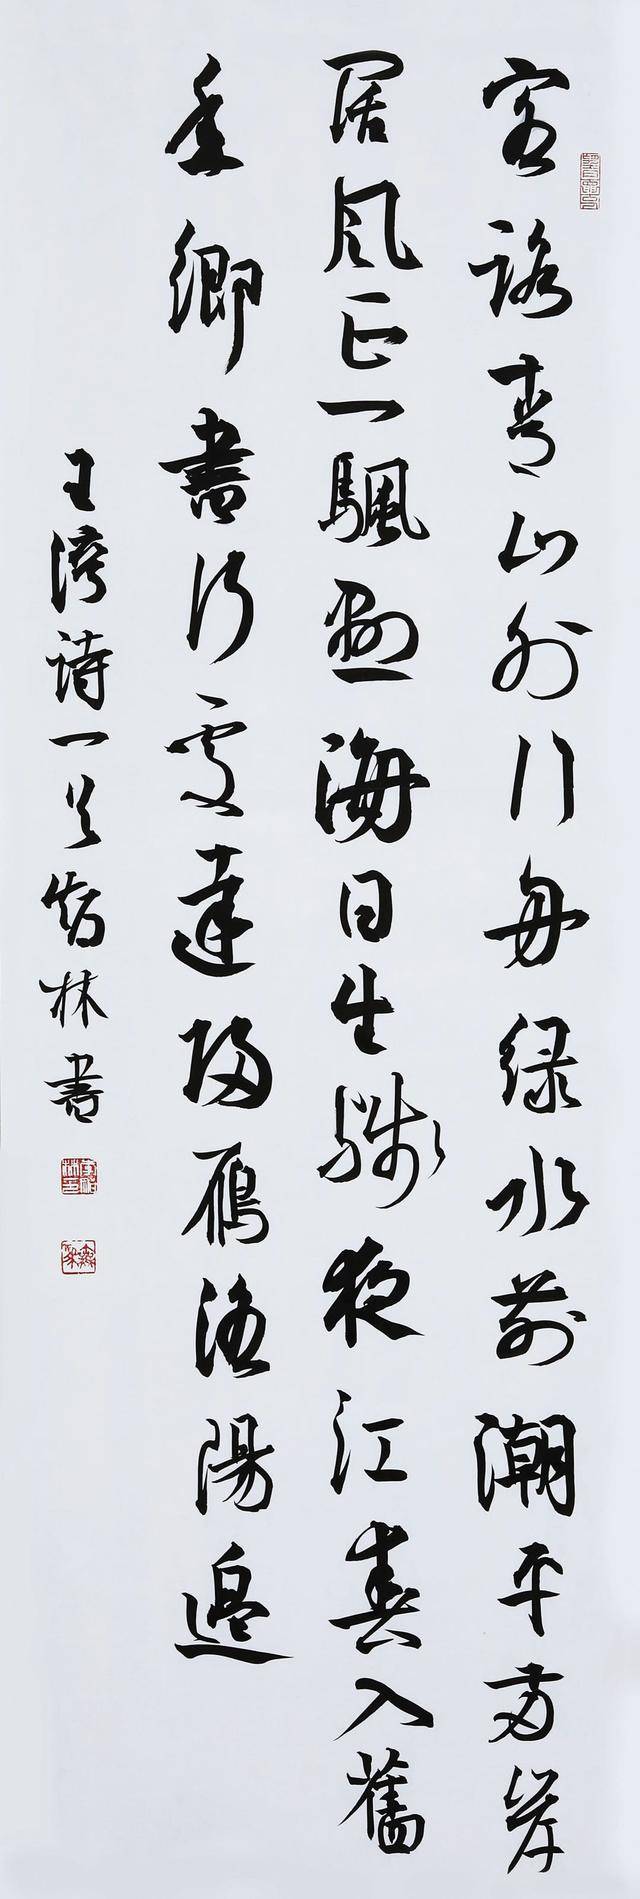 客路青山外行舟綠水前潮平兩岸
闊風正一颿懸海日生殘夜江春入舊
年鄉書何處達歸雁洛陽邊
王灣詩一首林書